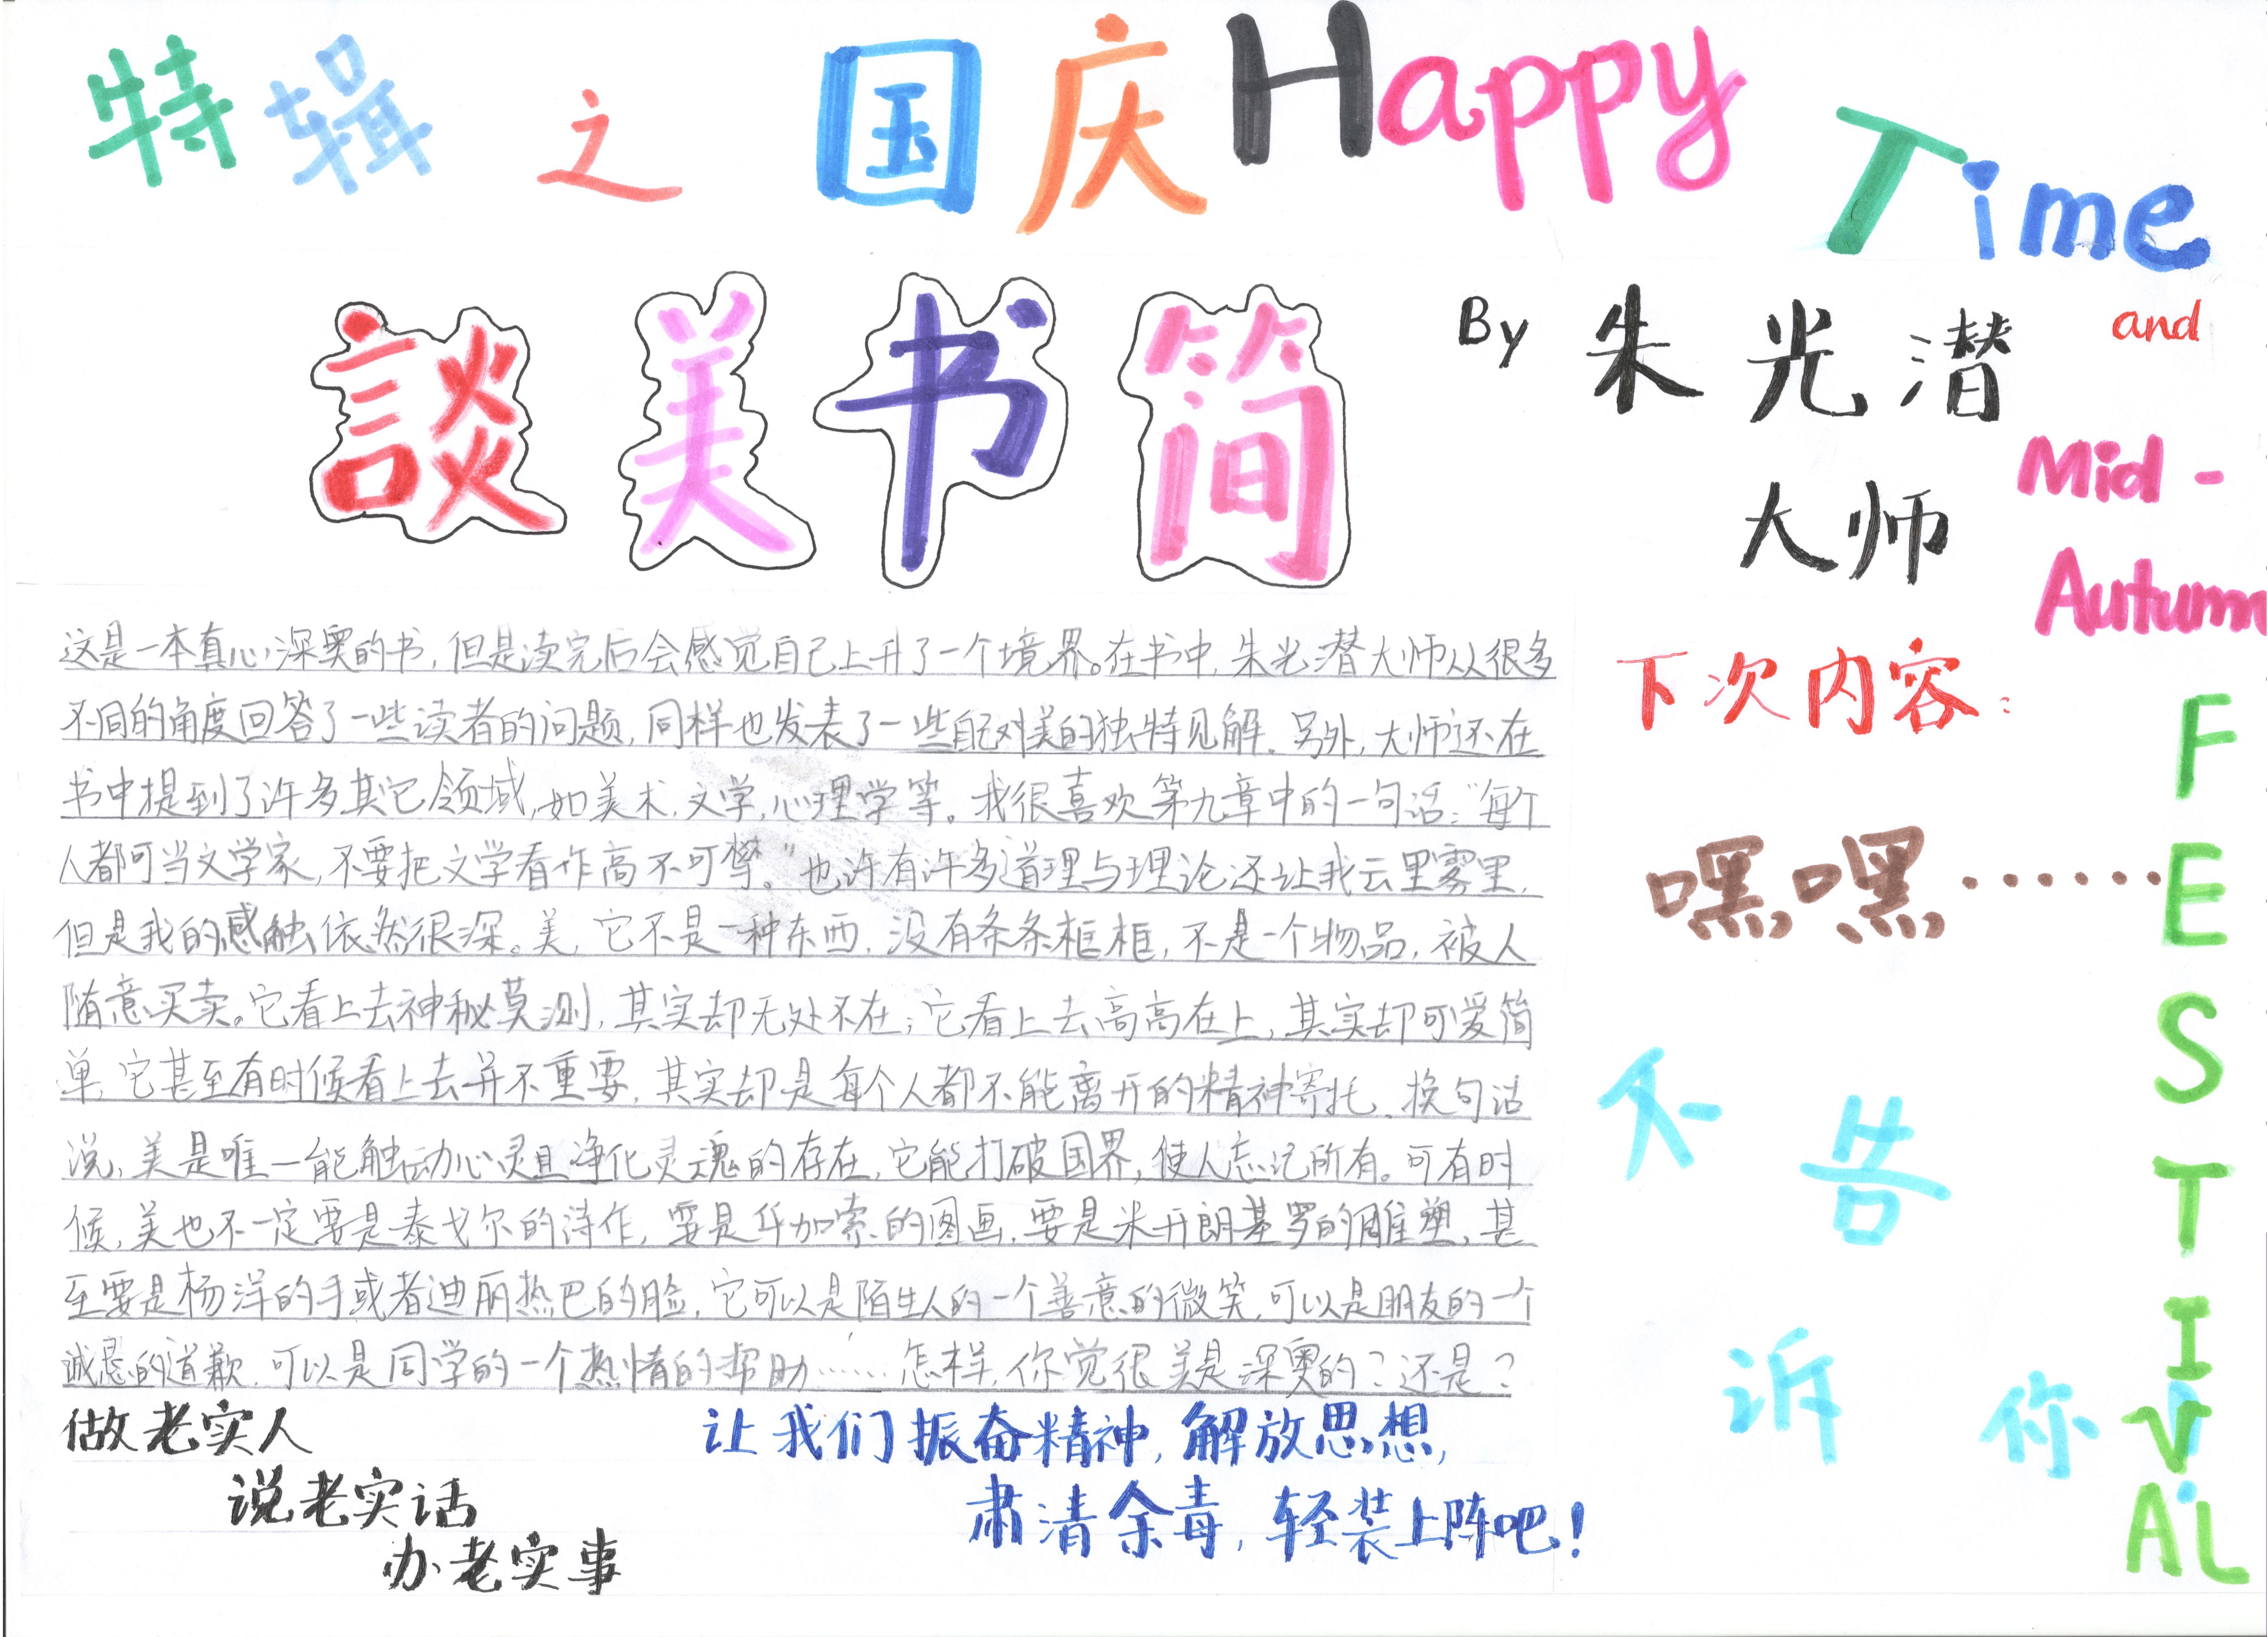 特辑之国庆Happy Time
and
Mid-
Autumn
FESTIVAL
談美书简
By 朱光潜
大师
这是一本真心深奥的书,但是读完后会感觉自己上升了一个境界。在书中,朱光潜大师从很多
不同的角度回答了一些读者的问题,同样也发表了一些自己对美的独特见解。另外,大师还在
书中提到了许多其它领域,如美术,文学,心理学等。我很喜欢第九章中的一句话:“每个
人都可当文学家,不要把文学看作高不可攀。”也许有许多道理与理论还让我云里雾里,
但是我的感触依然很深。美,它不是一种东西,没有条条框框,不是一个物品,被人
随意买卖。它看上去神秘莫测,其实却无处不在;它看上去高高在上,其实却可爱简
单,它甚至有时候看上去并不重要,其实却是每个人都不能离开的精神寄托。换句话
说,美是唯一能触动心灵且净化灵魂的存在,它能打破国界,使人忘记所有。可有时
候,美也不一定要是泰戈尔的诗作,要是毕加索的图画,要是米开朗基罗的雕塑,甚
至要是杨洋的手或者迪丽热巴的脸,它可以是陌生人的一个善意的微笑,可以是朋友的一个
诚恳的道歉,可以是同学的一个热情的帮助……怎样,你觉很美是深奥的?还是?
做老实人
说老实话
办老实事
让我们振奋精神,解放思想,
肃清余毒,轻装上阵吧!
下次内容:
嘿嘿……
不告
诉你